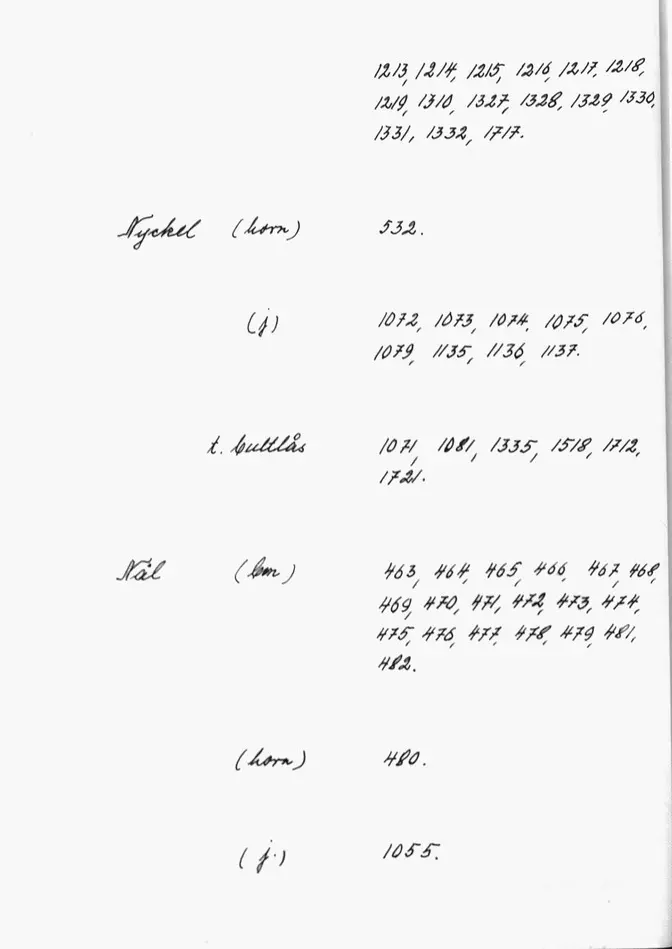 1213, 1214, 1215, 1216, 1217, 1218,
1219, 1310, 1327, 1328, 1329, 1330,
1331, 1332, 1717.
Nyckel (horn) 532.
(j) 1072, 1073, 1074, 1075, 1076,
1079, 1135, 1136, 1137.
t. bultlås 1071, 1081, 1335, 1518, 1712,
1721.
Nål (bm) 463, 464, 465, 466, 467, 468,
469, 470, 471, 472, 473, 474,
475, 476, 477, 478, 479, 481,
482.
(horn) 480.
(j.) 1055.